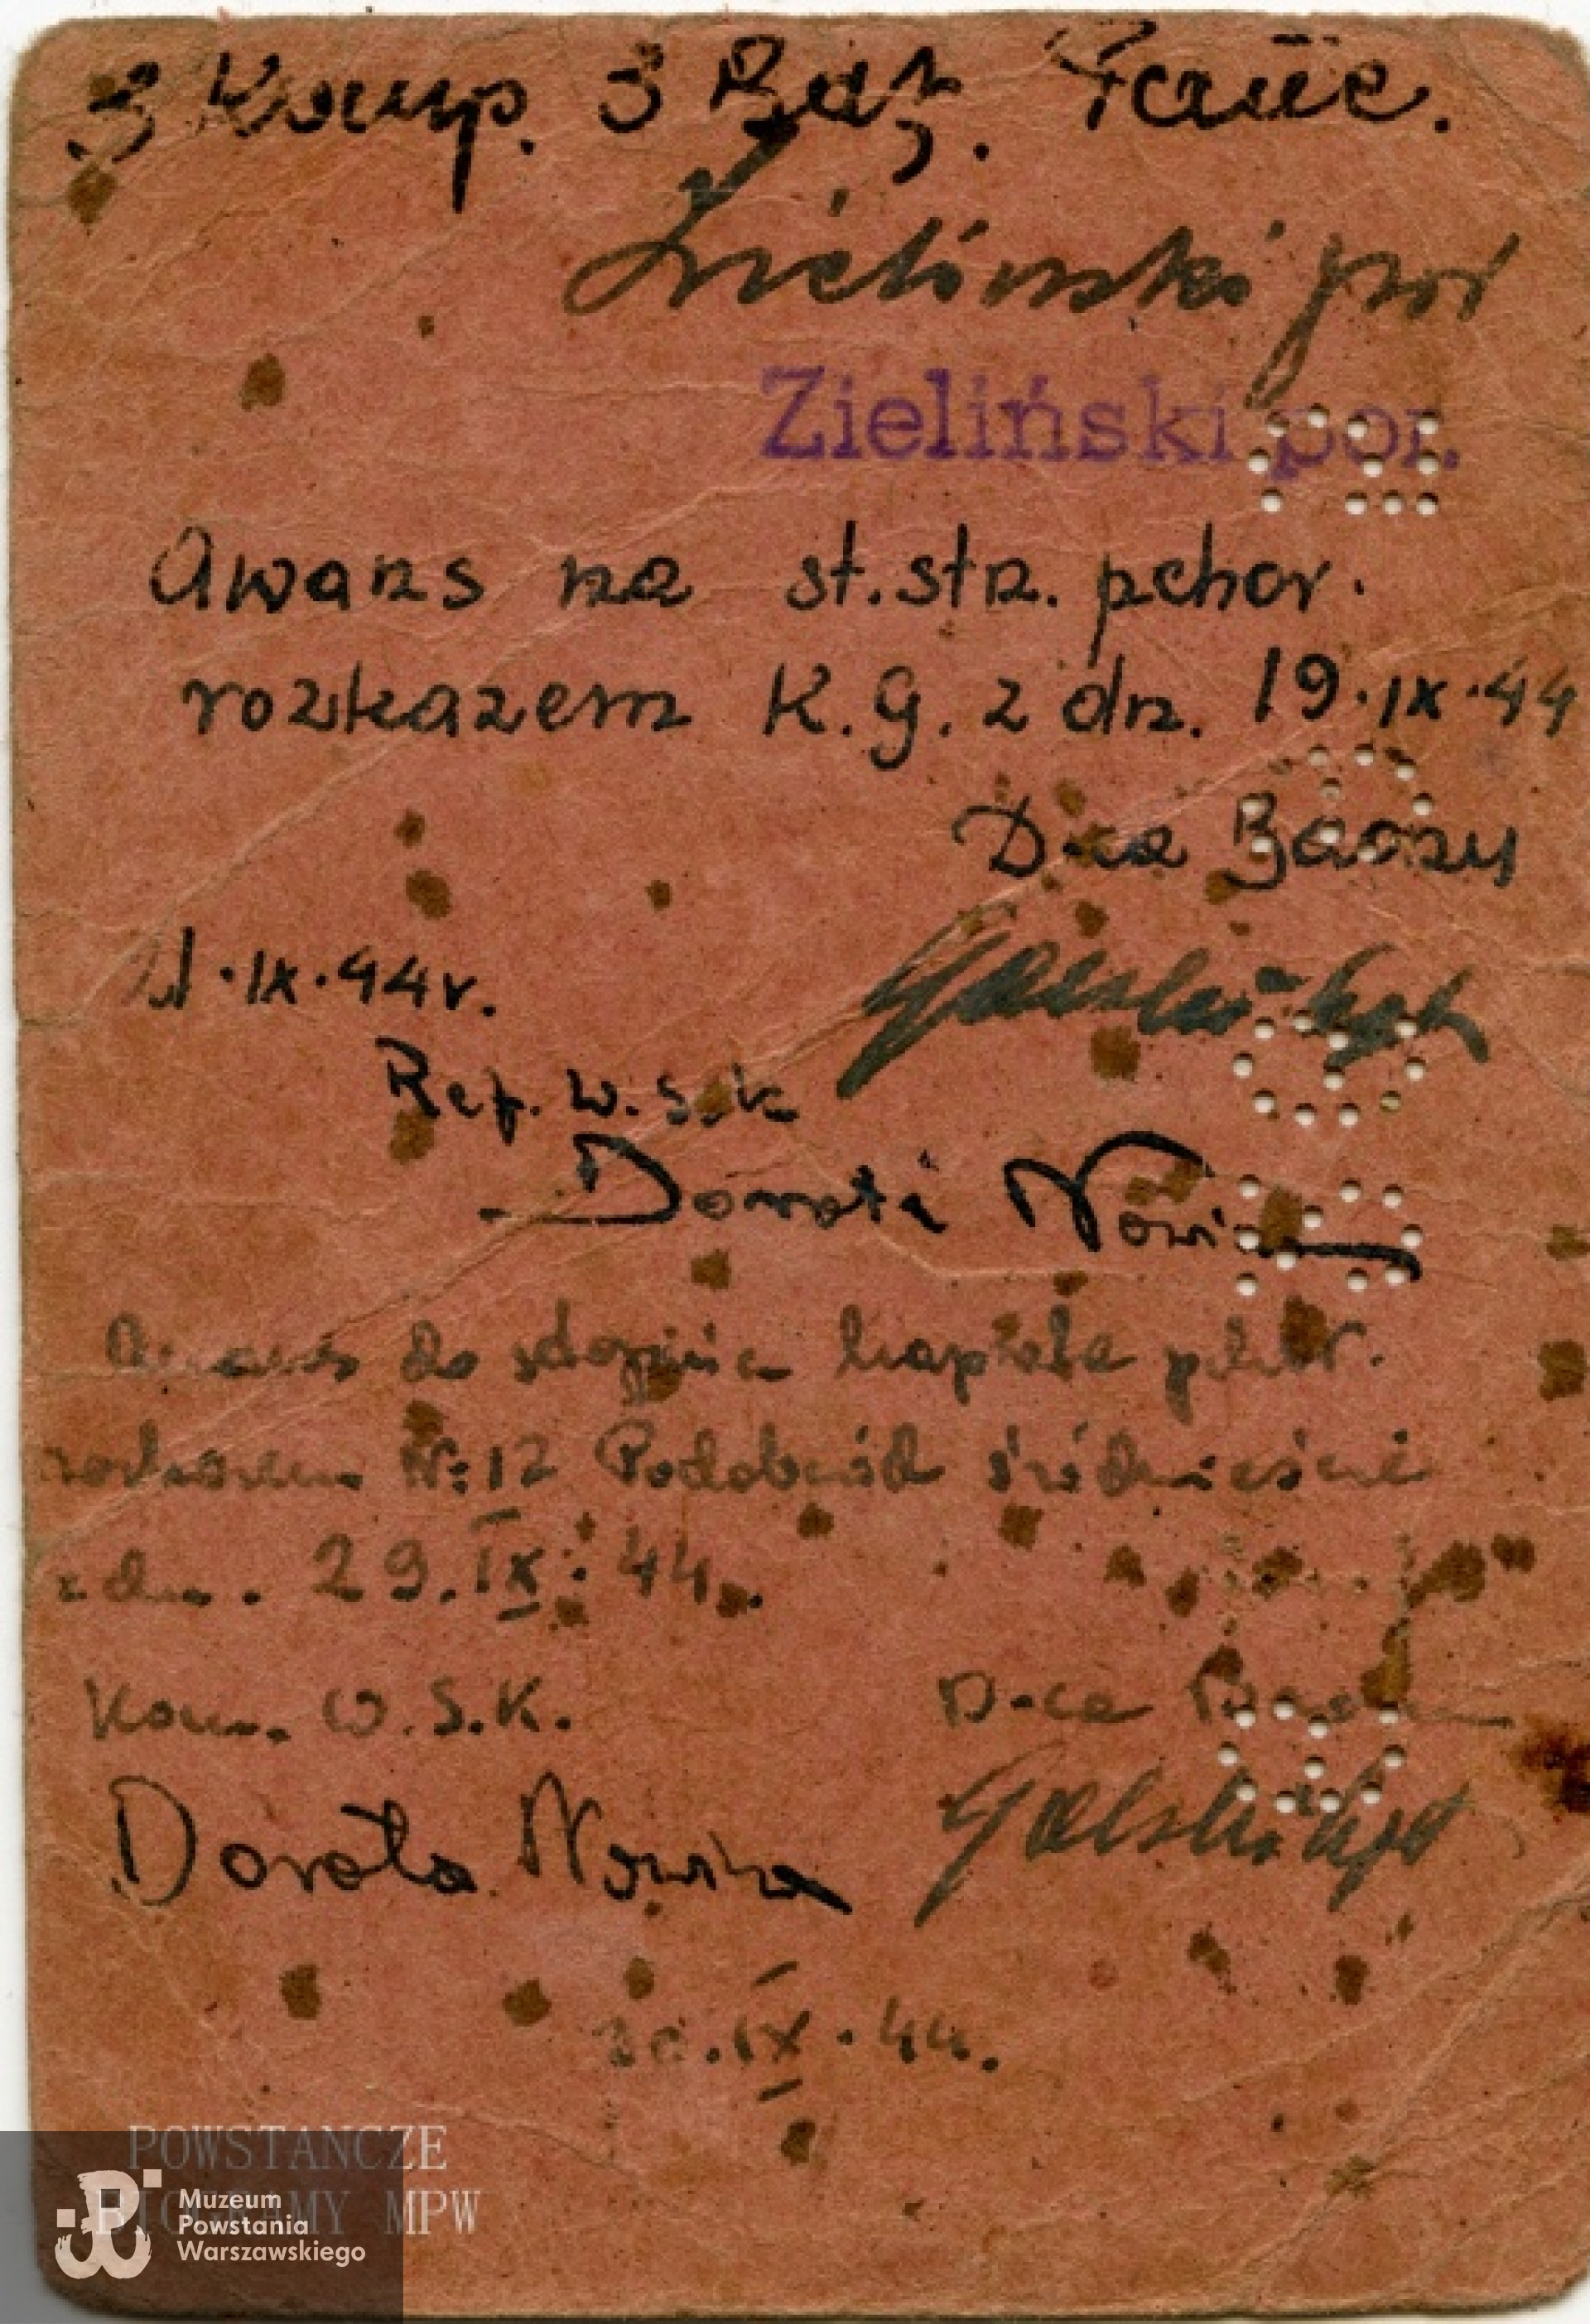 3 Komp. 3 Baż. Panc.
Zieliński por
Zieliński por.
Awans na st. strz. pchor.
rozkazem K.G. z dn. 19.IX.44
D-ca Bazy
21.IX.44r.
Golski kpt
Ref. W.S.K
Dorota Nowi
Awans do stopnia kaprala pchor.
rozkazem Nr 12 Podobwód śródmieście
z dn. 29.IX.44r.
Kom. W.S.K.
D-ca
Dorota Nowina
Golski kpt
30.IX.44.
POWSTAŃCZE
BIOGRAMY MPW
Muzeum
Powstania
Warszawskiego